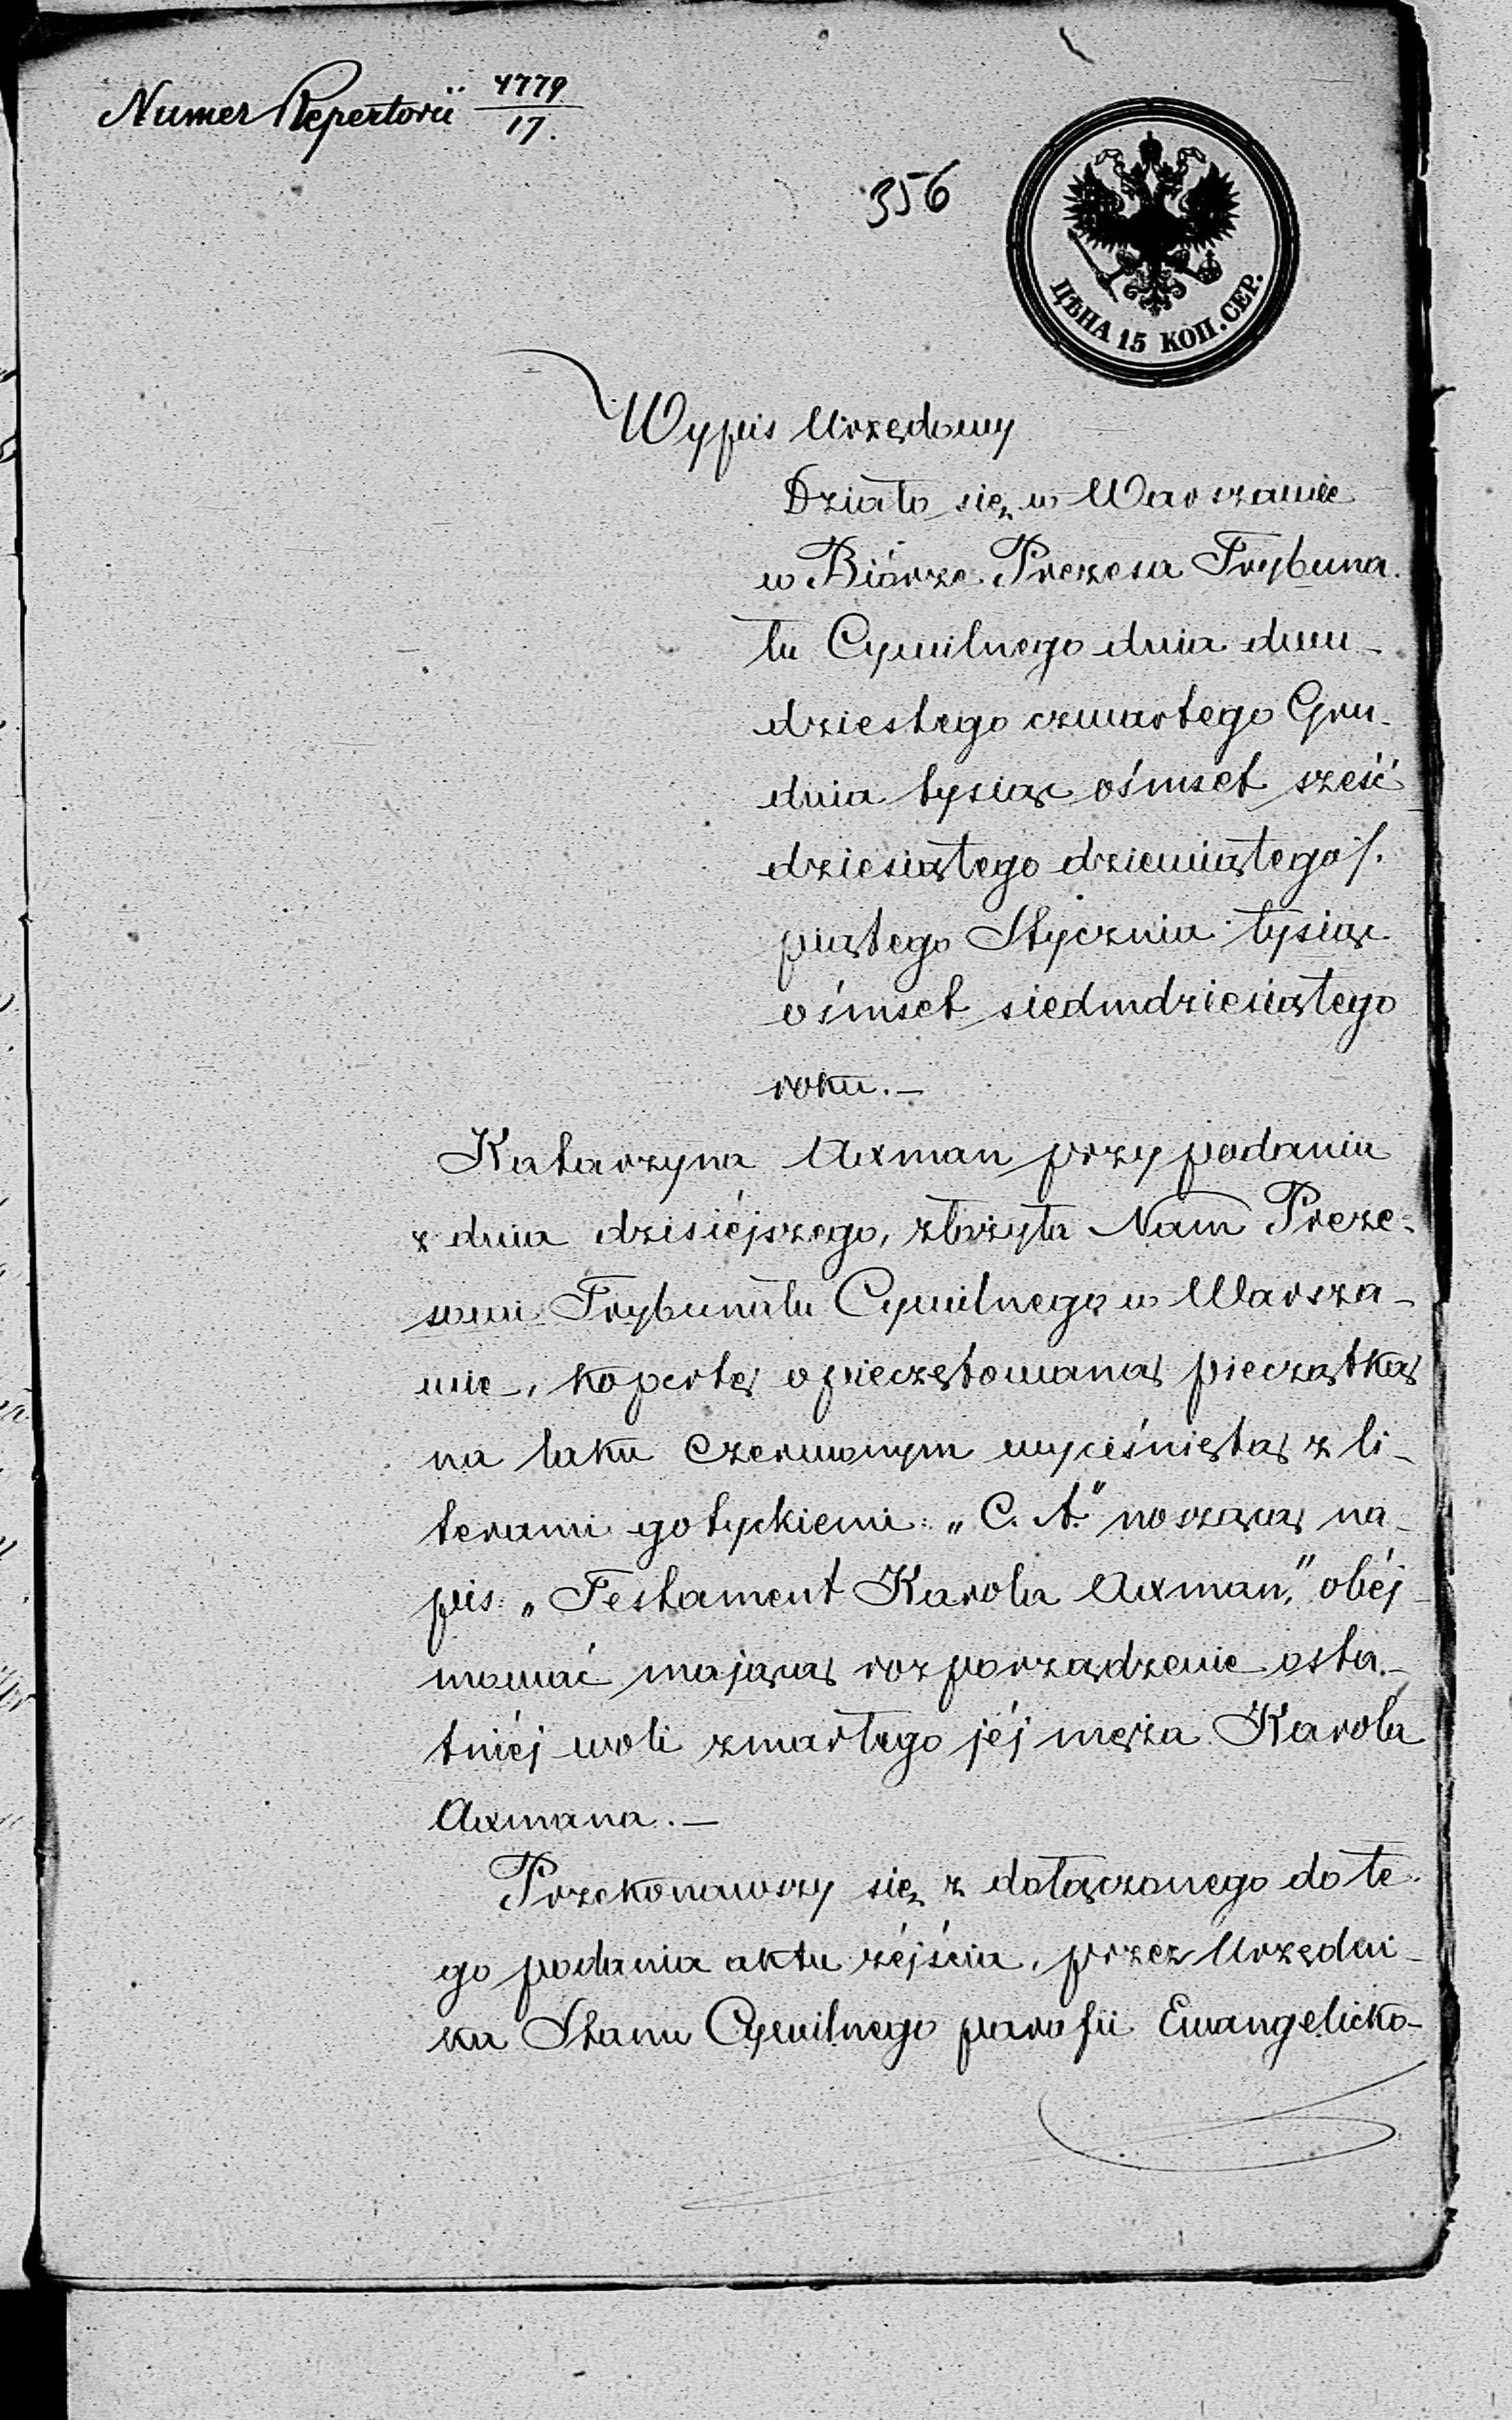 Numer Repertorii 4779/17.
356
ЦѢНА 15 КОП. СЕР.
Wypis Urzędowy
Działo się w Warszawie
w Biórze Prezesa Trybuna-
łu Cywilnego dnia dwu-
dziestego czwartego Gru-
dnia tysiąc ośmset sześć
dziesiątego dziewiątego /.
piątego Stycznia tysiąc
ośmset siedmdziesiątego
roku.—
Katarzyna Axman przy podaniu
z dnia dzisiéjszego, złożyła Nam Preze-
sowi Trybunału Cywilnego w Warsza-
wie, kopertę opieczętowaną pieczątką
na laku czerwonym wyciśniętą z li-
terami gotyckiemi: „C. A." noszącą na-
pis: „Testament Karola Axman," obéj-
mować mającą rozporządzenie osta-
tniéj woli zmarłego jéj męża Karola
Axmana.—
Przekonawszy się z dołączonego do te-
go podania aktu zéjścia, przez Urzędni-
ka Stanu Cywilnego parafii Ewangelicko-